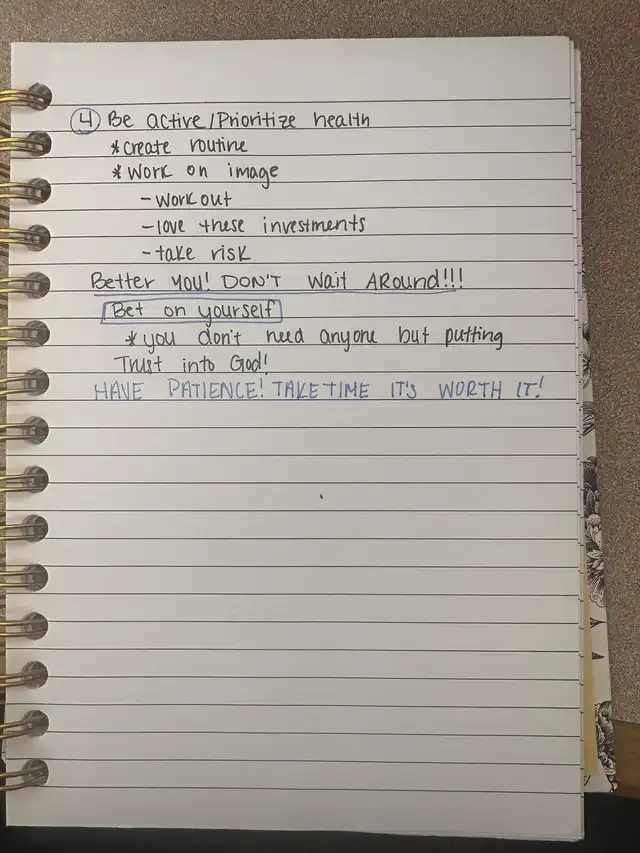 4 Be active/Prioritize health
*create routine
*work on image
-workout
-love these investments
-take risk
Better you! DON'T wait ARound!!!
Bet on yourself
*you don't need anyone but putting
Trust into God!
HAVE PATIENCE! TAKE TIME IT'S WORTH IT!